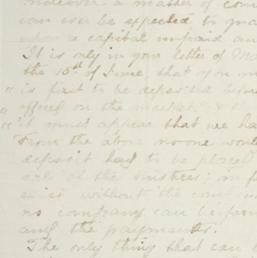 moreover a matter of com
can ever be expected to gra
upon a capital unpaid an
It is only in your letter of M
the 10th of June, that of on m
" is first to be deposited before
" offered on the market, &
" it must appear that we ha
From the above no one woul
deposit had to be placed
of the trustees; in f
exist without the com
no company can be form
and the payments.
The only thing that can